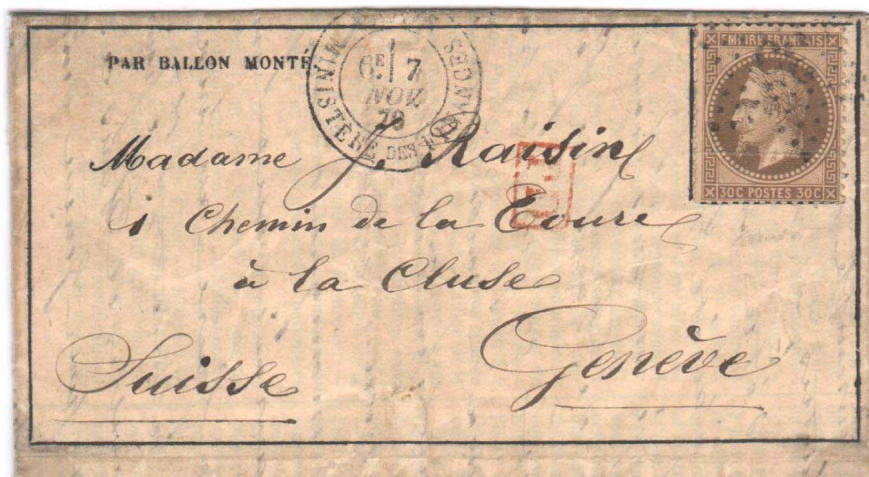 PAR BALLON MONTÉ.
MINISTÈRE DES FINANCES
6E 7
NOV.
70
EMPIRE FRANÇAIS
30C POSTES 30C
Madame J. Raisin
1 Chemin de la Tour
à la Cluse
Genève
Suisse